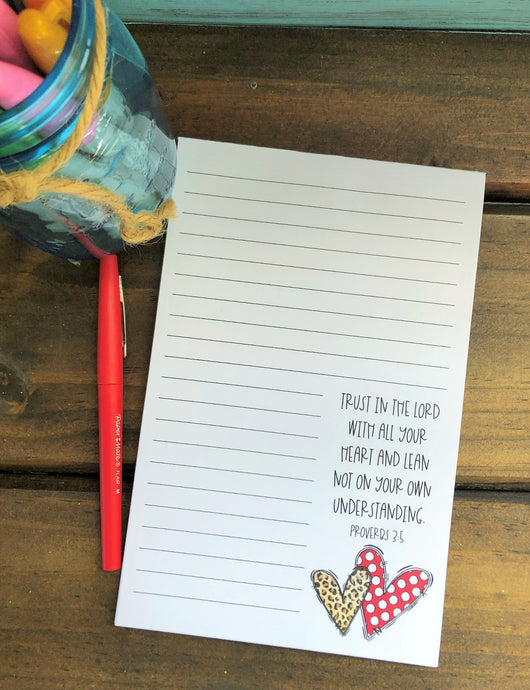 TRUST IN THE LORD
WITH ALL YOUR
HEART AND LEAN
NOT ON YOUR OWN
UNDERSTANDING.
PROVERBS 3:5
Paper Mate® FLAIR M